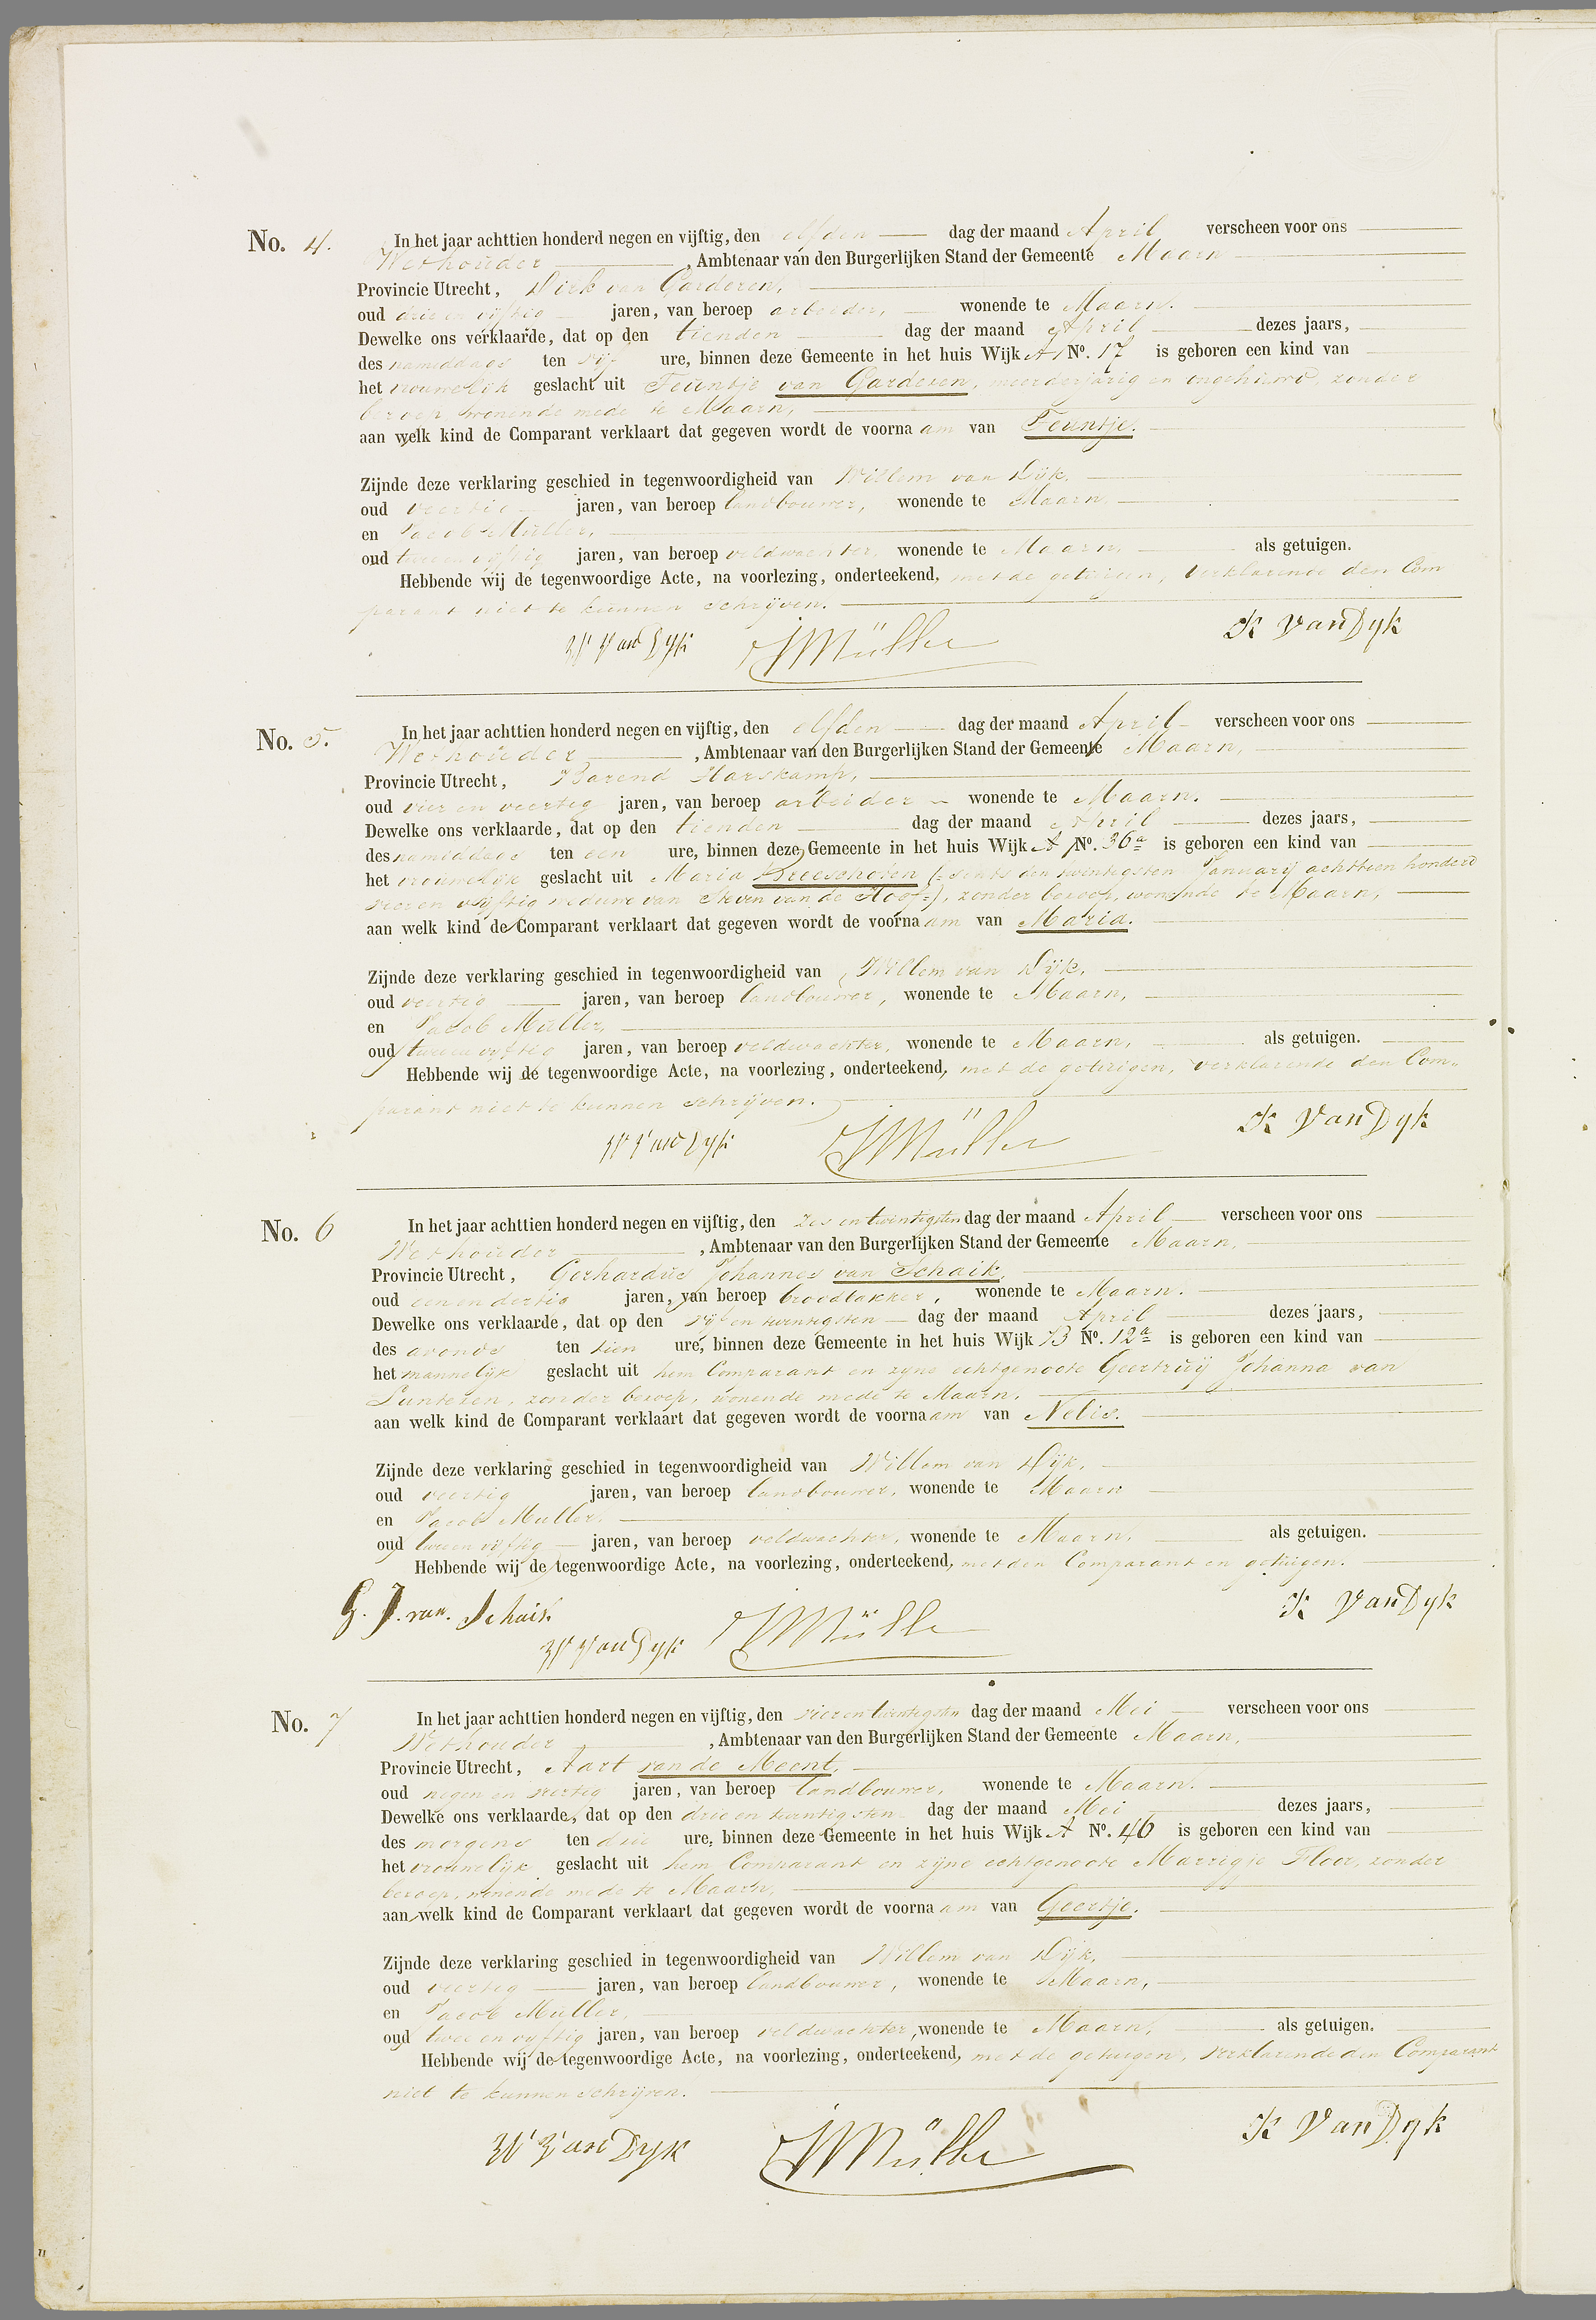 No. 4. In het jaar achttien honderd negen en vijftig, den elfden dag der maand April verscheen voor ons
Wethouder, Ambtenaar van den Burgerlijken Stand der Gemeente Maarn
Provincie Utrecht, Dirk van Garderen,
oud drie en vijftig jaren, van beroep arbeider, wonende te Maarn.
Dewelke ons verklaarde, dat op den tienden dag der maand April dezes jaars,
des namiddags ten vijf ure, binnen deze Gemeente in het huis Wijk A No. 17 is geboren een kind van
het vrouwelijk geslacht uit Teuntje van Garderen, meerderjarig en ongehuwd, zonder
beroep wonende mede te Maarn,
aan welk kind de Comparant verklaart dat gegeven wordt de voornaam van Teuntje.
Zijnde deze verklaring geschied in tegenwoordigheid van Willem van Dijk,
oud veertig jaren, van beroep landbouwer, wonende te Maarn,
en Jacob Müller,
oud twee en vijftig jaren, van beroep veldwachter, wonende te Maarn, als getuigen.
Hebbende wij de tegenwoordige Acte, na voorlezing, onderteekend, met de getuigen, verklarende den Com
parant niet te kunnen schrijven.
W Van Dyk JMüller K Van Dyk
No. 5. In het jaar achttien honderd negen en vijftig, den elfden dag der maand April verscheen voor ons
Wethouder, Ambtenaar van den Burgerlijken Stand der Gemeente Maarn,
Provincie Utrecht, Barend Harskamp,
oud vier en veertig jaren, van beroep arbeider wonende te Maarn.
Dewelke ons verklaarde, dat op den tienden dag der maand April dezes jaars,
des namiddags ten een ure, binnen deze Gemeente in het huis Wijk A No. 36a is geboren een kind van
het vrouwelijk geslacht uit Maria Breeschoten (: sents den twintigsten Januarij achttien honderd
vier en vijftig weduwe van Steven van de Hoof:), zonder beroep, wonende te Maarn,
aan welk kind de Comparant verklaart dat gegeven wordt de voornaam van Maria.
Zijnde deze verklaring geschied in tegenwoordigheid van Willem van Dijk,
oud veertig jaren, van beroep landbouwer, wonende te Maarn,
en Jacob Müller,
oud twee en vijftig jaren, van beroep veldwachter, wonende te Maarn, als getuigen.
Hebbende wij de tegenwoordige Acte, na voorlezing, onderteekend, met de getuigen, verklarende den Com-
parant niet te kunnen schrijven.
W Van Dyk JMüller K Van Dyk
No. 6 In het jaar achttien honderd negen en vijftig, den zes en twintigsten dag der maand April verscheen voor ons
Wethouder, Ambtenaar van den Burgerlijken Stand der Gemeente Maarn,
Provincie Utrecht, Gerhardus Johannes van Schaik,
oud een en dertig jaren, van beroep broodbakker, wonende te Maarn.
Dewelke ons verklaarde, dat op den vijf en twintigsten dag der maand April dezes jaars,
des avonds ten tien ure, binnen deze Gemeente in het huis Wijk B No. 12a is geboren een kind van
het mannelijk geslacht uit hem Comparant en zijne echtgenoote Geertruij Johanna van
Lunteren, zonder beroep, wonende mede te Maarn,
aan welk kind de Comparant verklaart dat gegeven wordt de voornaam van Nelis.
Zijnde deze verklaring geschied in tegenwoordigheid van Willem van Dijk,
oud veertig jaren, van beroep landbouwer, wonende te Maarn
en Jacob Muller,
oud twee en vijftig jaren, van beroep veldwachter, wonende te Maarn, als getuigen.
Hebbende wij de tegenwoordige Acte, na voorlezing, onderteekend, met den Comparant en getuigen.
G. J. van Schaik K Van Dyk
W Van Dyk JMüller
No. 7 In het jaar achttien honderd negen en vijftig, den vier en twintigsten dag der maand Mei verscheen voor ons
Wethouder, Ambtenaar van den Burgerlijken Stand der Gemeente Maarn,
Provincie Utrecht, Aart van de Meent,
oud negen en veertig jaren, van beroep landbouwer, wonende te Maarn.
Dewelke ons verklaarde, dat op den drie en twintigsten dag der maand Mei dezes jaars,
des morgens ten drie ure, binnen deze Gemeente in het huis Wijk A No. 46 is geboren een kind van
het vrouwelijk geslacht uit hem Comparant en zijne echtgenoote Marrigje Floor, zonder
beroep, wonende mede te Maarn,
aan welk kind de Comparant verklaart dat gegeven wordt de voornaam van Geertje.
Zijnde deze verklaring geschied in tegenwoordigheid van Willem van Dijk,
oud veertig jaren, van beroep landbouwer, wonende te Maarn,
en Jacob Müller,
oud twee en vijftig jaren, van beroep veldwachter, wonende te Maarn, als getuigen.
Hebbende wij de tegenwoordige Acte, na voorlezing, onderteekend, met de getuigen, verklarende den Comparant
niet te kunnen schrijven.
W Van Dyk JMüller K Van Dyk